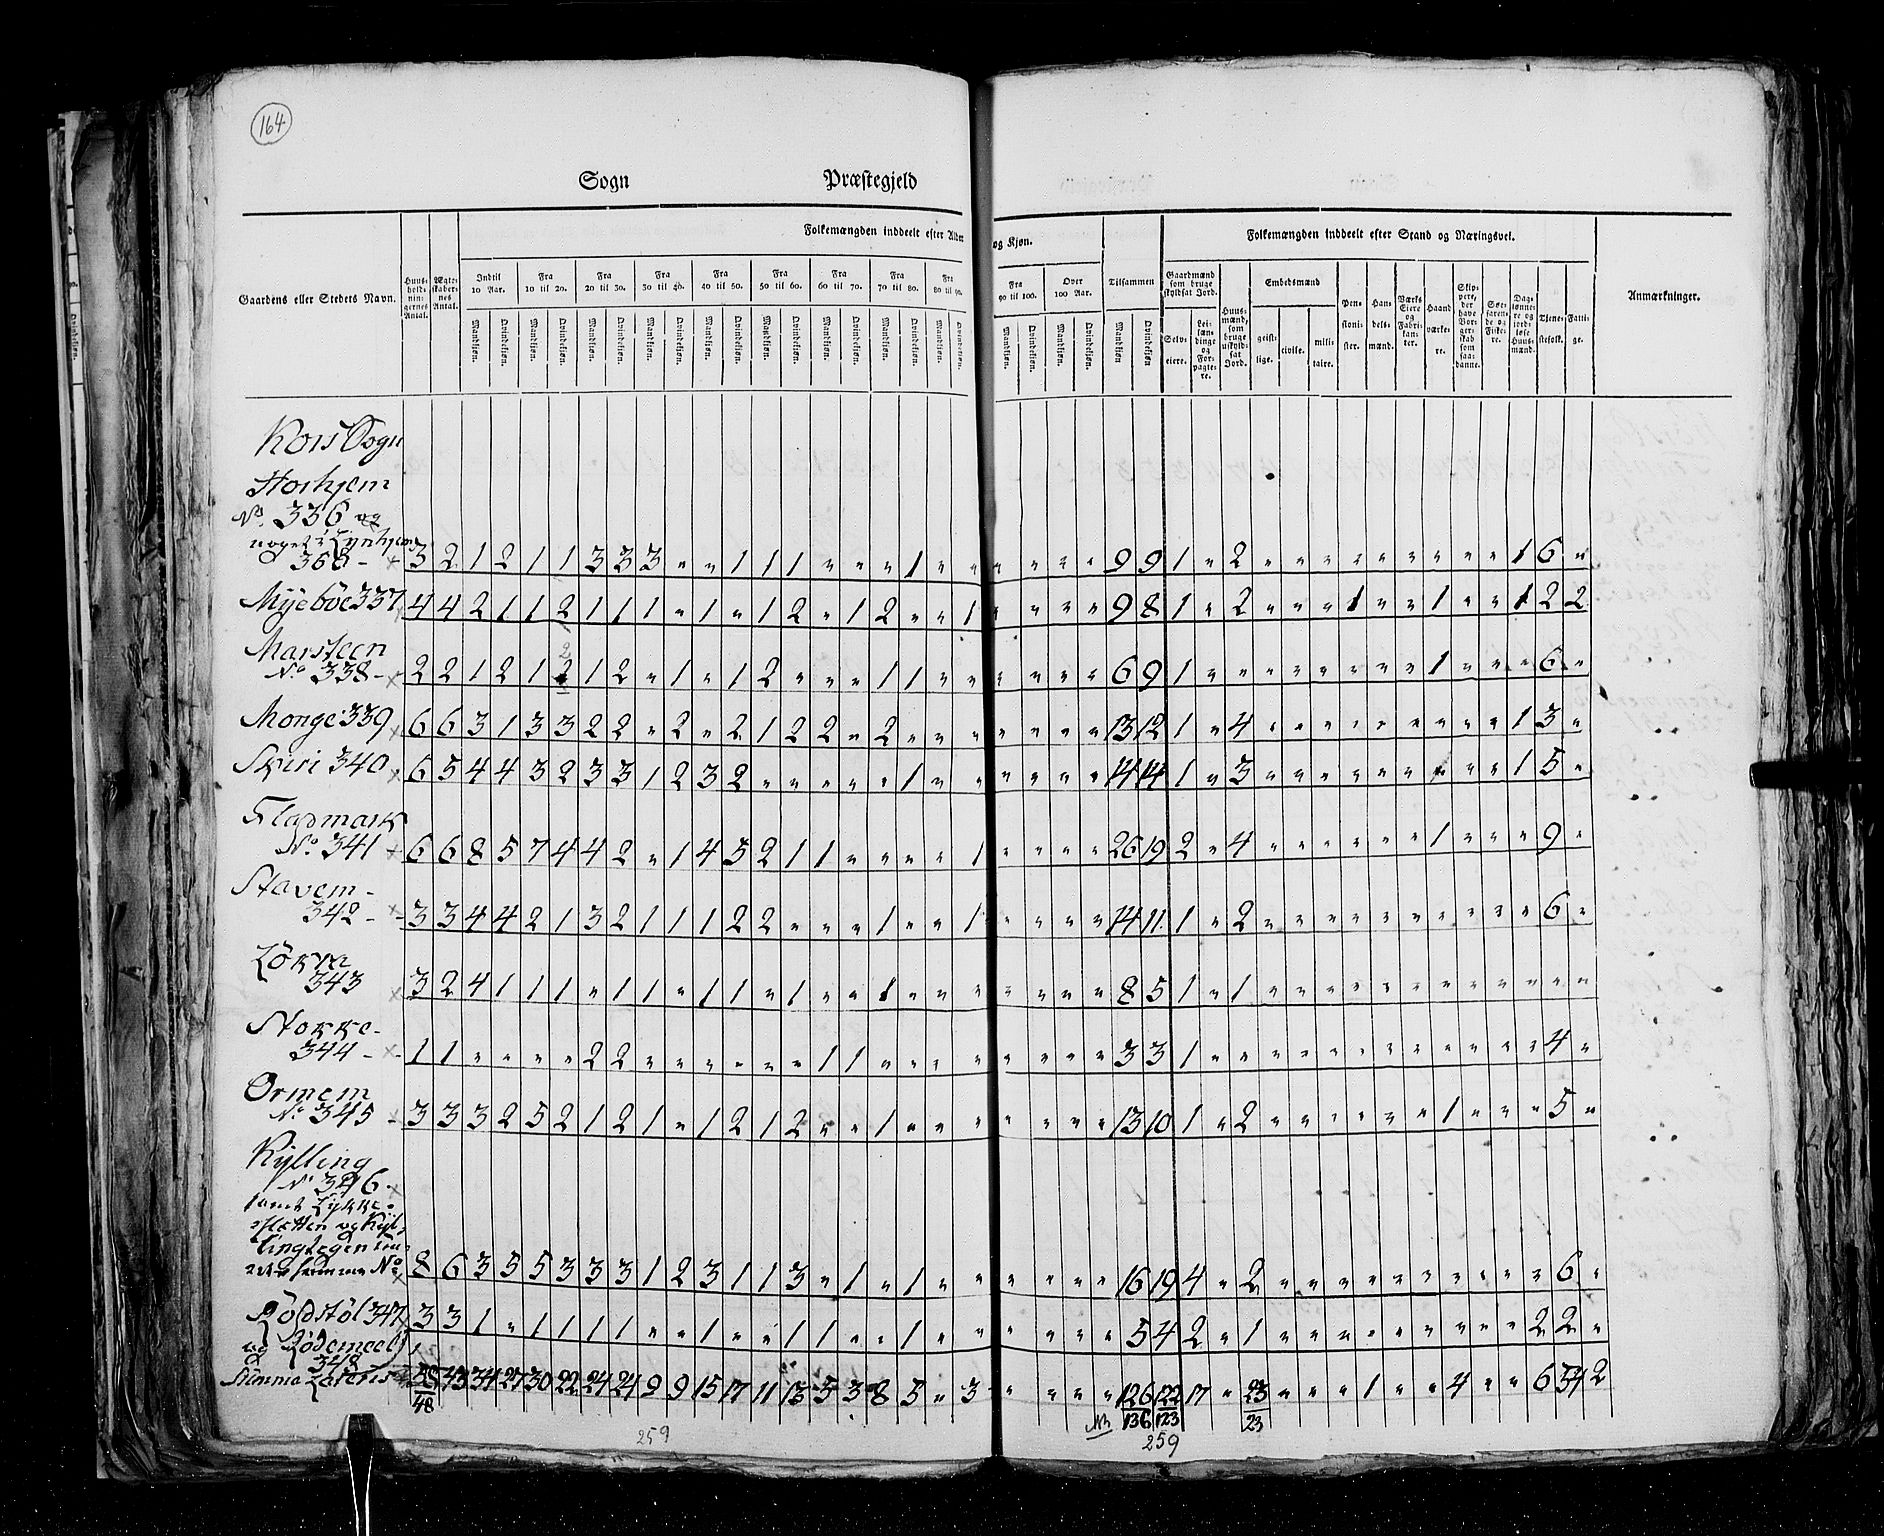 164
Sogn Præstegjeld
Gaardens eller Stedets Navn.
Huusholdningernes Antal.
Ægteskabernes Antal.
Folkemængden inddeelt efter Alder og Kjøn.
Indtil 10 Aar. Fra 10 til 20. Fra 20 til 30. Fra 30 til 40. Fra 40 til 50. Fra 50 til 60. Fra 60 til 70. Fra 70 til 80. Fra 80 til 90. Fra 90 til 100. Over 100 Aar. Tilsammen
Mandkjøn. Qvindekjøn. Mandkjøn. Qvindekjøn. Mandkjøn. Qvindekjøn. Mandkjøn. Qvindekjøn. Mandkjøn. Qvindekjøn. Mandkjøn. Qvindekjøn. Mandkjøn. Qvindekjøn. Mandkjøn. Qvindekjøn. Mandkjøn. Qvindekjøn. Mandkjøn. Qvindekjøn. Mandkjøn. Qvindekjøn. Mandkjøn Qvindekjøn
Folkemængden inddeelt efter Stand og Næringsvei.
Gaardmænd som bruge skyldsat Jord.
Selveiere.
Leilændinge og Forpagtere.
Huusmænd, som bruge uskyldsat Jord.
Embedsmænd
geistlige. civile. militaire.
Pensionister.
Handelsmænd.
Værks Eiere og Fabrikanter.
Haandværkere.
Skippere, der have Borgerskab som saadanne.
Søefarende og Fiskere.
Daglønnere og jordløse Huusmænd.
Tjenestefolk.
Fattige.
Anmærkninger.
Kors Sogn
Horhjem
No. 336 og
noget i Lynhjem
360 - 3 2 1 2 1 1 3 3 3 " " 1 1 1 " " " 1 " " " " " " 9 9 1 " 2 " " " " " " " " " 1 6 "
Myeböe 337 4 4 2 1 1 2 1 1 1 " 1 " 1 2 " 1 2 " " 1 " " " " 9 8 1 " 2 " " " 1 " " 1 " " 1 2 2
Marsteen 2
No 338 - 2 2 1 2 1 2 1 2 " 1 " 1 2 " " " 1 1 " " " " " " 6 9 1 " " " " " " " " 1 " " " 6 "
Monge 339 6 6 3 1 3 3 2 2 " 2 " 2 1 2 2 " 2 " " " " " " " 13 12 1 " 4 " " " " " " " " " 1 3 "
Skiri 340 6 5 4 4 3 2 3 3 1 2 3 2 " " " " " 1 " " " " " " 14 14 1 " 3 " " " " " " " " " 1 5 "
Flapmark
No 341 6 6 8 5 7 4 4 2 " 1 4 5 2 1 1 " " " " 1 " " " " 26 19 2 " 4 " " " " " " 1 " " " 9 "
Stavem -
342 - 3 3 4 4 2 1 3 2 1 1 1 2 2 " " " 1 " " 1 " " " " 14 11 1 " 2 " " " " " " " " " " 6 "
343 3 2 4 1 1 1 " 1 1 " 1 1 " 1 " " 1 " " " " " " " 8 5 1 " 1 " " " " " " " " " " " "
Stokke -
344 - 1 1 " " " " 2 2 " " " " " " 1 1 " " " " " " " " 3 3 1 " " " " " " " " " " " " 4 "
Ormem
No 345 - 3 3 3 2 5 2 1 2 1 " 1 2 1 2 " " 1 " " " " " " " 13 10 1 " 2 " " " " " " 1 " " " 5 "
Kylling
No 346 -
samt Lykke-
2de Numre No 8 6 3 5 5 3 3 3 1 2 3 1 1 3 " 1 " 1 " " " " " " 16 19 4 " 2 " " " " " " " " " " 6 "
347 3 3 1 " 1 1 1 1 " " 1 " " 1 1 " " 1 " " " " " " 5 4 2 " 1 " " " " " " " " " 2 2 "
og
348
Summa Lateris 58 43 34 27 30 22 24 24 9 9 15 17 11 13 5 3 8 5 " 3 " " " " 126 122 17 " 23 " " " 1 " " 4 " " 6 54 2
48 NB 136 123 23
259 259